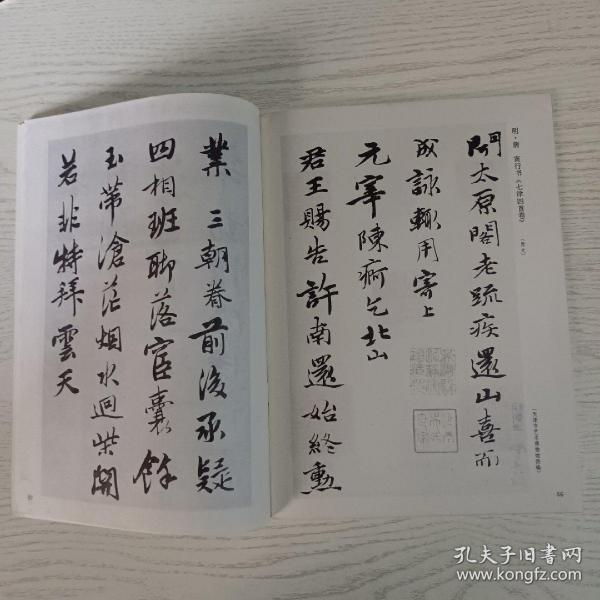 明·唐 寅行书《七律四首卷》
聞太原閣老疏疾還山喜而
成詠輒用寄上
元宰陳疴乞北山
君王賜告許南還始終勲
業三朝眷前後承疑
四相班聊落宦囊餘
玉帶滄茫烟水迥柴關
若非特拜雲天
56
孔夫子旧书网
www.kongfz.com